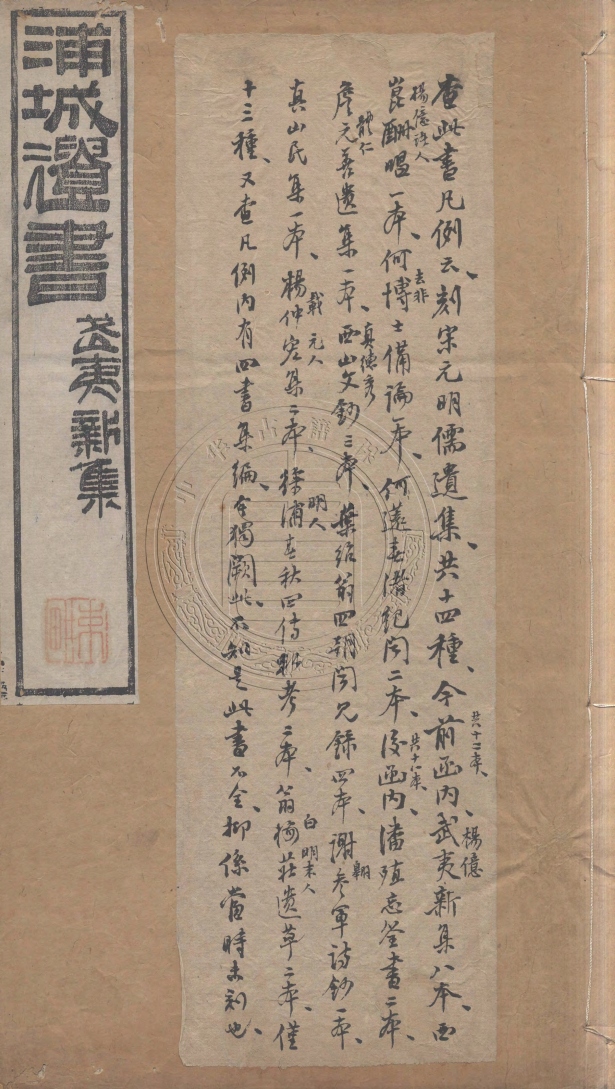 浦城遺書
武夷新集
查此書凡例云、刻宋元明儒遺集、共十四種、今前函内、武夷新集八本、西
共十二本、
楊億
崑酬唱一本、何博士備論一本、何薳春渚紀聞二本、後函内、潘殖忘筌書二本、
楊億諸人
去非
共十八本、
詹元善遺集一本、西山文鈔三本、葉紹翁四朝聞見錄四本、謝參軍詩鈔一本、
體仁
真德秀
翱
真山民集一本、楊仲宏集二本、徐浦春秋四傳私考二本、翁梅莊遺草二本、僅
載 元人
明人
白 明末人
十三種、又查凡例内有四書集編、今獨闕此、不知是此書不全、抑係當時未刻也、